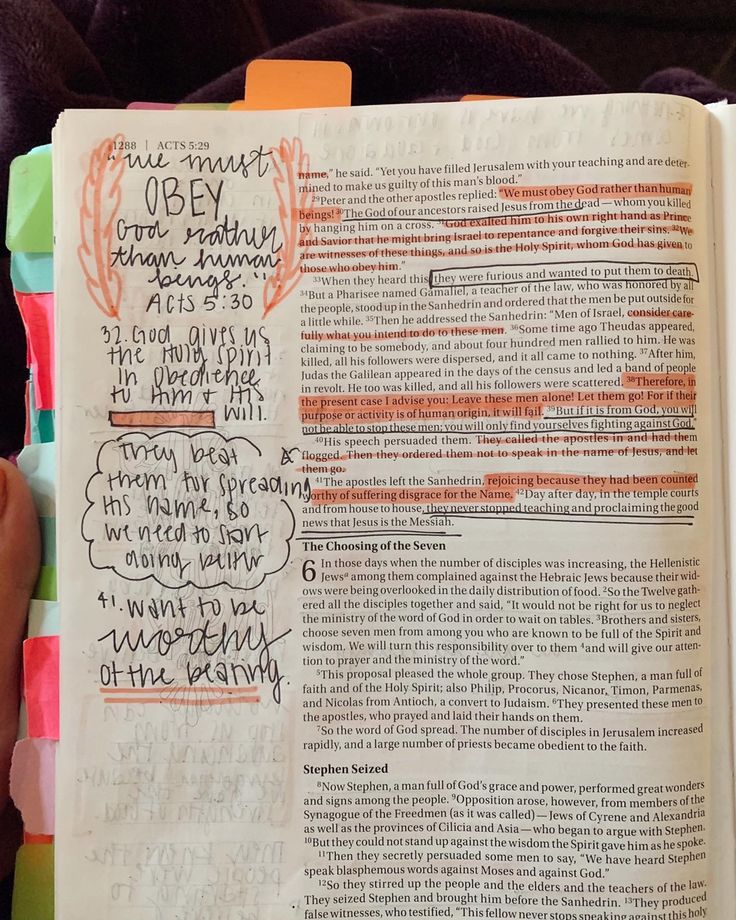 1288 | ACTS 5:29
"we must
OBEY
God rather
than human
beings."
ACTS 5:30
32. God gives us
the Holy Spirit
in Obedience
to Him + His
will.
they beat
them for spreading
His name, so
we need to start
doing better
41. want to be
worthy
of the beating.
name," he said. "Yet you have filled Jerusalem with your teaching and are deter-
mined to make us guilty of this man's blood."
29Peter and the other apostles replied: "We must obey God rather than human
beings! 30The God of our ancestors raised Jesus from the dead — whom you killed
by hanging him on a cross. 31God exalted him to his own right hand as Prince
and Savior that he might bring Israel to repentance and forgive their sins. 32We
are witnesses of these things, and so is the Holy Spirit, whom God has given to
those who obey him."
33When they heard this, they were furious and wanted to put them to death.
34But a Pharisee named Gamaliel, a teacher of the law, who was honored by all
the people, stood up in the Sanhedrin and ordered that the men be put outside for
a little while. 35Then he addressed the Sanhedrin: "Men of Israel, consider care-
fully what you intend to do to these men. 36Some time ago Theudas appeared,
claiming to be somebody, and about four hundred men rallied to him. He was
killed, all his followers were dispersed, and it all came to nothing. 37After him,
Judas the Galilean appeared in the days of the census and led a band of people
in revolt. He too was killed, and all his followers were scattered. 38Therefore, in
the present case I advise you: Leave these men alone! Let them go! For if their
purpose or activity is of human origin, it will fail. 39But if it is from God, you will
not be able to stop these men; you will only find yourselves fighting against God."
40His speech persuaded them. They called the apostles in and had them
flogged. Then they ordered them not to speak in the name of Jesus, and let
them go.
41The apostles left the Sanhedrin, rejoicing because they had been counted
worthy of suffering disgrace for the Name. 42Day after day, in the temple courts
and from house to house, they never stopped teaching and proclaiming the good
news that Jesus is the Messiah.
The Choosing of the Seven
6 In those days when the number of disciples was increasing, the Hellenistic
Jewsa among them complained against the Hebraic Jews because their wid-
ows were being overlooked in the daily distribution of food. 2So the Twelve gath-
ered all the disciples together and said, "It would not be right for us to neglect
the ministry of the word of God in order to wait on tables. 3Brothers and sisters,
choose seven men from among you who are known to be full of the Spirit and
wisdom. We will turn this responsibility over to them 4and will give our atten-
tion to prayer and the ministry of the word."
5This proposal pleased the whole group. They chose Stephen, a man full of
faith and of the Holy Spirit; also Philip, Procorus, Nicanor, Timon, Parmenas,
and Nicolas from Antioch, a convert to Judaism. 6They presented these men to
the apostles, who prayed and laid their hands on them.
7So the word of God spread. The number of disciples in Jerusalem increased
rapidly, and a large number of priests became obedient to the faith.
Stephen Seized
8Now Stephen, a man full of God's grace and power, performed great wonders
and signs among the people. 9Opposition arose, however, from members of the
Synagogue of the Freedmen (as it was called) — Jews of Cyrene and Alexandria
as well as the provinces of Cilicia and Asia — who began to argue with Stephen.
10But they could not stand up against the wisdom the Spirit gave him as he spoke.
11Then they secretly persuaded some men to say, "We have heard Stephen
speak blasphemous words against Moses and against God."
12So they stirred up the people and the elders and the teachers of the law.
They seized Stephen and brought him before the Sanhedrin. 13They produced
false witnesses, who testified, "This fellow never stops speaking against this holy